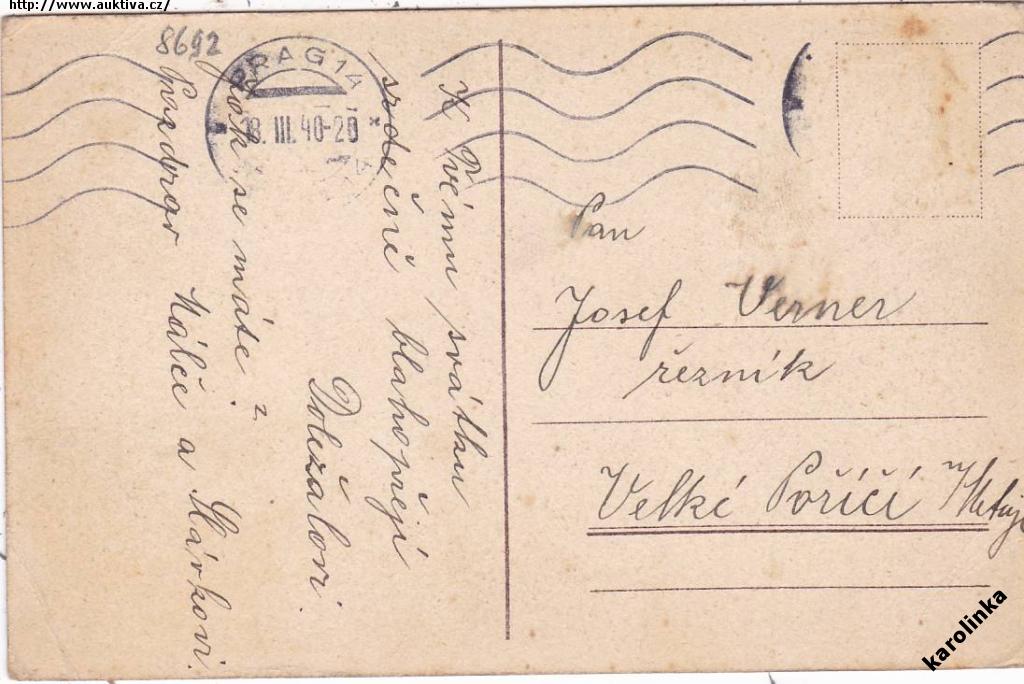 http://www.auktiva.cz/
8692
PRAG 14
18. III. 40-20
K Tvému svátku
srdečně blahopřejí
Doležalovi.
Jak se máte?
Pozdrav Málče a Slávkovi.
Pan
Josef Verner
řezník
Velké Poříčí /Metují
karolinka